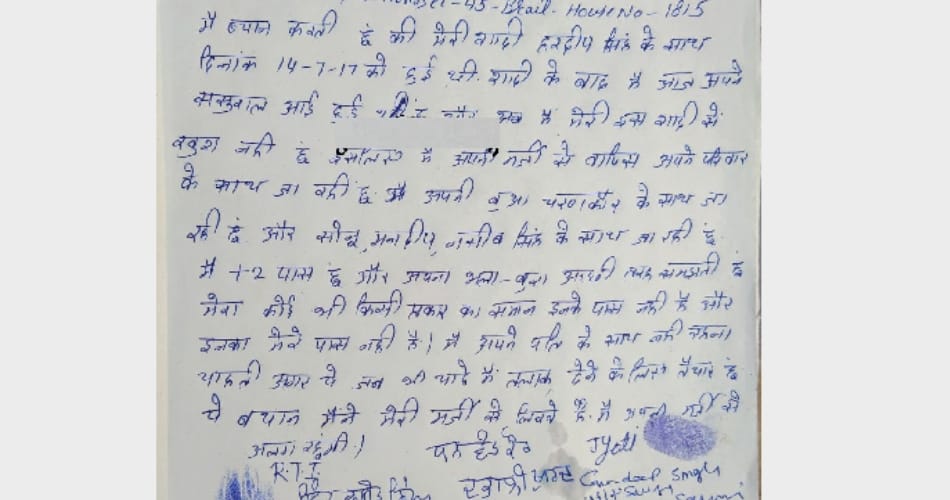 -45-Brail-House No-1815
मै ब्यान करती हुं की मेरी शादी हरदीप सिंह के साथ
दिनांक 14-7-17 को हुई थी. शादी के बाद मै आज अपने
ससुराल आई हुई अब मै मेरी इस शादी से
खुश नही हुं इसलिए मै अपनी मर्जी से वापिस अपने परिवार
के साथ जा रही हुं. मै अपनी बुआ चरणकौर के साथ जा
रही हुं और सोनू, मनदीप, नसीब सिंह के साथ जा रही हुं
मै +2 पास हुं और अपना भला-बुरा अच्छी तरह समझती हुं
मेरा कोई भी किसी प्रकार का समान इनके पास नही है और
इनका मेरे पास नही है। मै अपने पति के साथ नही रहना
चाहती अगर ये जब भी चाहे मै तलाक देने के लिए तैयार हुं
ये बयान मैने मेरी मर्जी से लिखे है. मै अपनी मर्जी से
अलग रहुंगी।
Jyoti
R.T.I
Gurdeep Singh